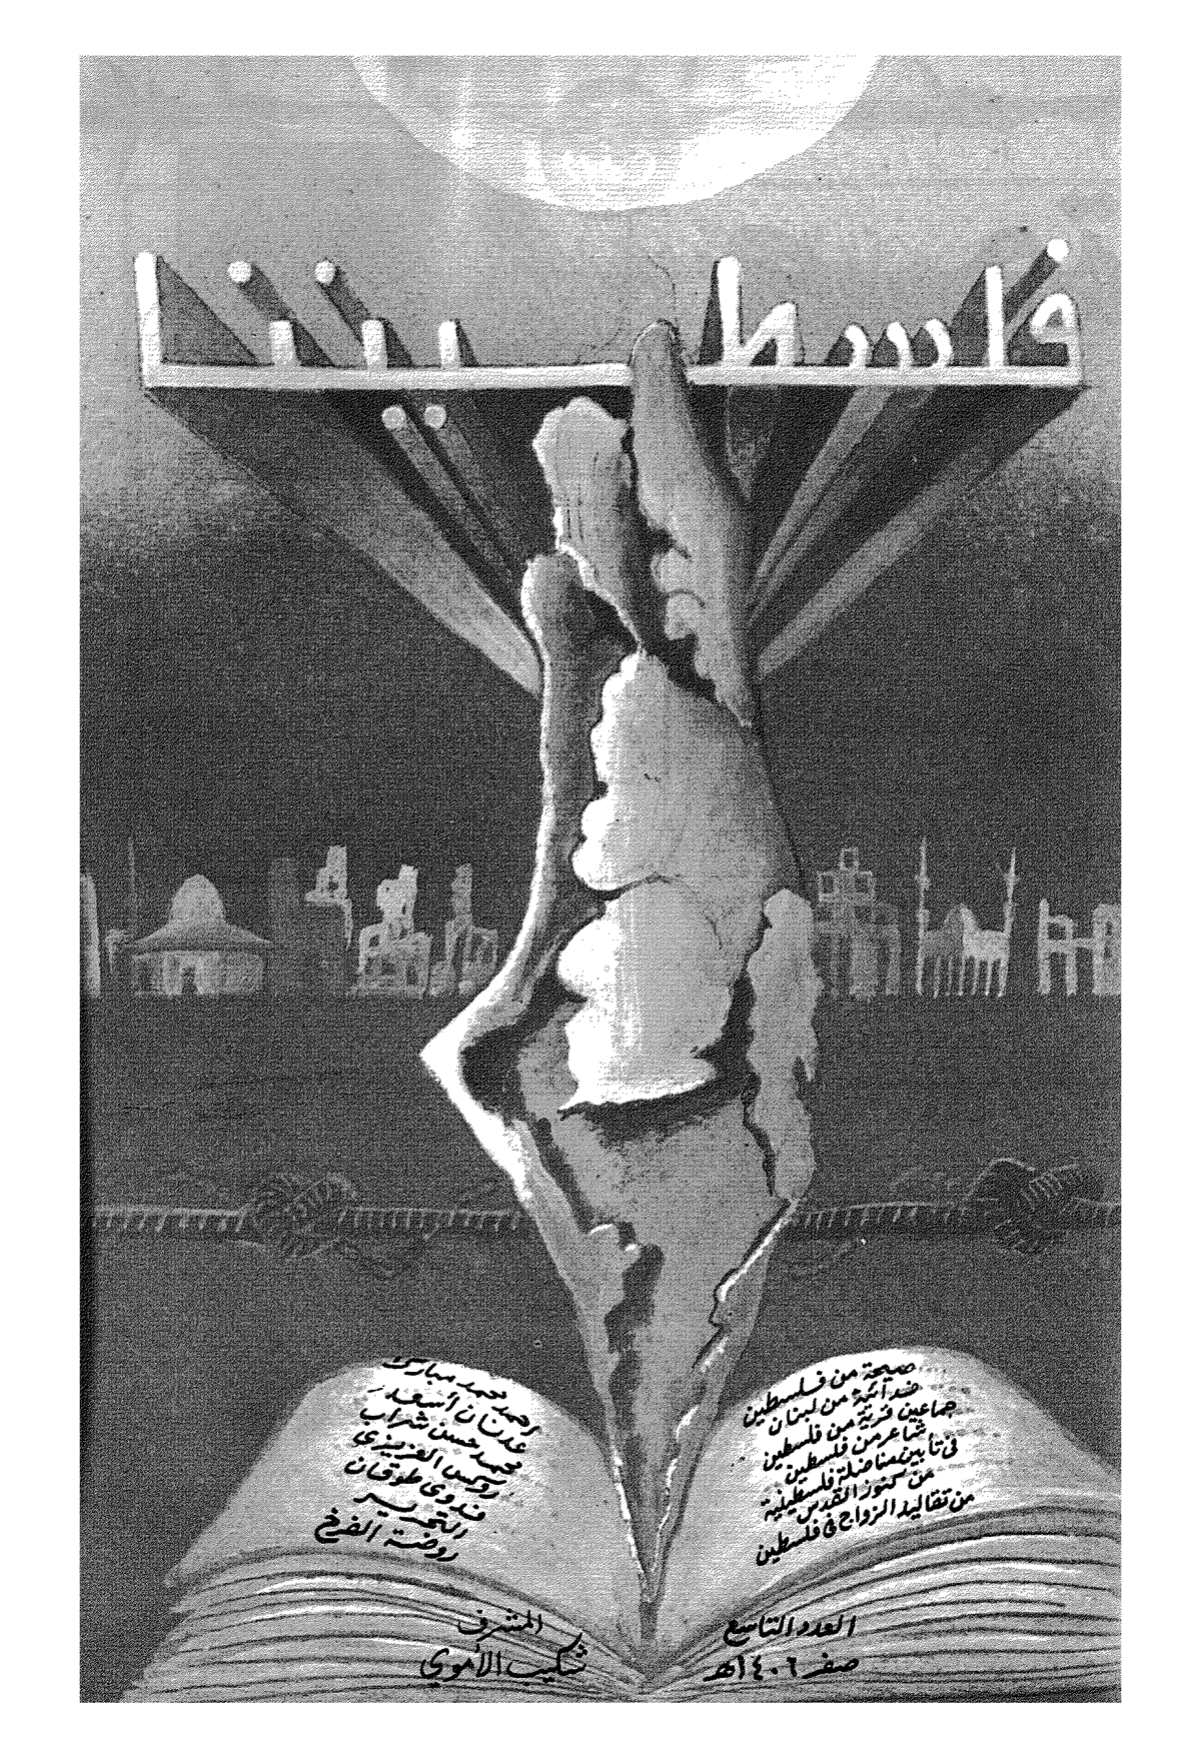 فلسطيننا
صيحة من فلسطين
فدائية من لبنان
جماعين قرية من فلسطين
شاعر من فلسطين
في تأبين مناضلة فلسطينية
من كنوز القدس
من تقاليد الزواج في فلسطين
احمد محمد مبارك
عدنان أسعد
محمد حسن شراب
روكس العزيزي
فدوى طوقان
التحرير
روضة الفرخ
العدد التاسع
صفر ١٤٠٦هـ
المشرف
شكيب الأموي